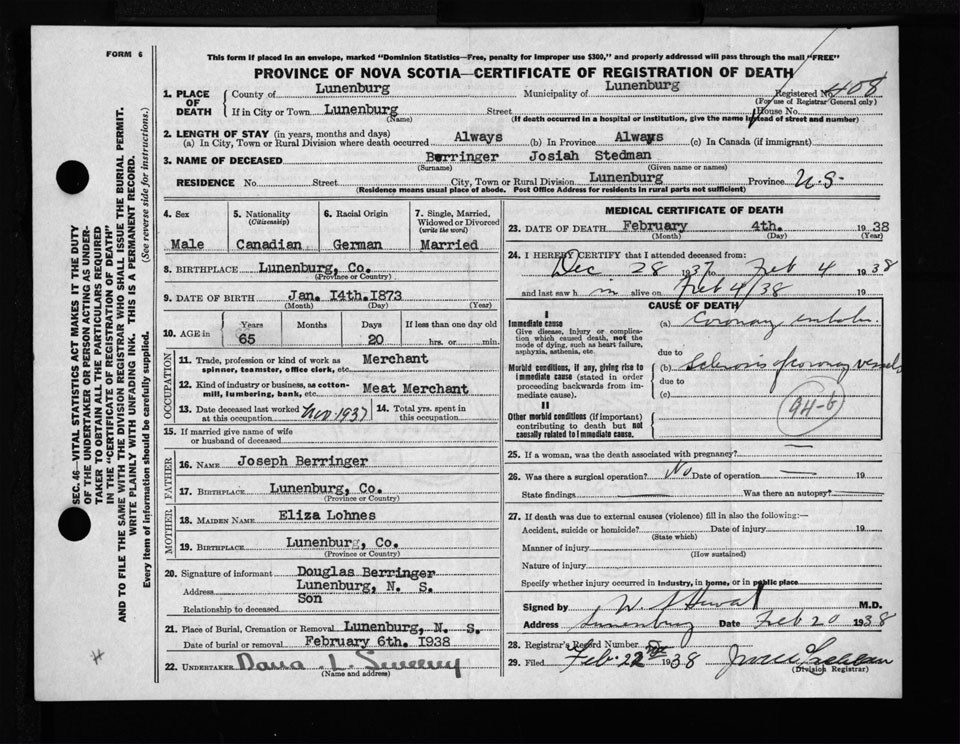 FORM 6
This form if placed in an envelope, marked "Dominion Statistics—Free, penalty for improper use $300," and properly addressed will pass through the mail "FREE"
PROVINCE OF NOVA SCOTIA—CERTIFICATE OF REGISTRATION OF DEATH
SEC. 46—VITAL STATISTICS ACT MAKES IT THE DUTY
OF THE UNDERTAKER OR PERSON ACTING AS UNDER-
TAKER TO OBTAIN ALL THE PARTICULARS REQUIRED
IN THE "CERTIFICATE OF REGISTRATION OF DEATH"
AND TO FILE THE SAME WITH THE DIVISION REGISTRAR WHO SHALL ISSUE THE BURIAL PERMIT.
WRITE PLAINLY WITH UNFADING INK. THIS IS A PERMANENT RECORD.
Every item of information should be carefully supplied. (See reverse side for instructions.)
1. PLACE OF DEATH County of Lunenburg Municipality of Lunenburg Registered No. 408
(For use of Registrar General only)
If in City or Town Lunenburg Street House No.
(Name) (If death occurred in a hospital or institution, give the name instead of street and number)
2. LENGTH OF STAY (in years, months and days)
(a) In City, Town or Rural Division where death occurred Always (b) In Province Always (c) In Canada (if immigrant)
3. NAME OF DECEASED Berringer Josiah Stedman
(Surname) (Given name or names)
RESIDENCE No. Street City, Town or Rural Division Lunenburg Province N.S.
(Residence means usual place of abode. Post Office Address for residents in rural parts not sufficient)
4. Sex 5. Nationality (Citizenship) 6. Racial Origin 7. Single, Married, Widowed or Divorced (write the word)
Male Canadian German Married
8. BIRTHPLACE Lunenburg, Co.
(Province or Country)
9. DATE OF BIRTH Jan. 14th.1873
(Month) (Day) (Year)
10. AGE in Years Months Days If less than one day old
65 20 hrs. or min.
OCCUPATION
11. Trade, profession or kind of work as spinner, teamster, office clerk, etc. Merchant
12. Kind of industry or business, as cotton-mill, lumbering, bank, etc. Meat Merchant
13. Date deceased last worked at this occupation Nov 1937 14. Total yrs. spent in this occupation
15. If married give name of wife or husband of deceased
FATHER
16. NAME Joseph Berringer
17. BIRTHPLACE Lunenburg, Co.
(Province or Country)
MOTHER
18. MAIDEN NAME Eliza Lohnes
19. BIRTHPLACE Lunenburg, Co.
(Province or Country)
20. Signature of informant Douglas Berringer
Address Lunenburg, N. S.
Relationship to deceased Son
21. Place of Burial, Cremation or Removal Lunenburg, N. S.
Date of burial or removal February 6th. 1938
22. UNDERTAKER Dana L. Sweeny
(Name and address)
MEDICAL CERTIFICATE OF DEATH
23. DATE OF DEATH February 4th. 1938
(Month) (Day) (Year)
24. I HEREBY CERTIFY that I attended deceased from:
Dec 28 1937 to Feb 4 1938
and last saw h m alive on Feb 4/38 19
CAUSE OF DEATH
I
Immediate cause (a) Coronary
Give disease, injury or complication which caused death, not the mode of dying, such as heart failure, asphyxia, asthenia, etc.
due to
Morbid conditions, if any, giving rise to immediate cause (stated in order proceeding backwards from immediate cause). (b) Sclerosis of coronary vessels
due to
(c)
94-b
II
Other morbid conditions (if important) contributing to death but not causally related to immediate cause.
25. If a woman, was the death associated with pregnancy?
26. Was there a surgical operation? No Date of operation 19
State findings Was there an autopsy?
27. If death was due to external causes (violence) fill in also the following:—
Accident, suicide or homicide? Date of injury 19
(State which)
Manner of injury
(How sustained)
Nature of injury
Specify whether injury occurred in industry, in home, or in public place
Signed by M.D.
Address Lunenburg Date Feb 20 1938
28. Registrar's Record Number
29. Filed Feb. 22 1938
(Division Registrar)